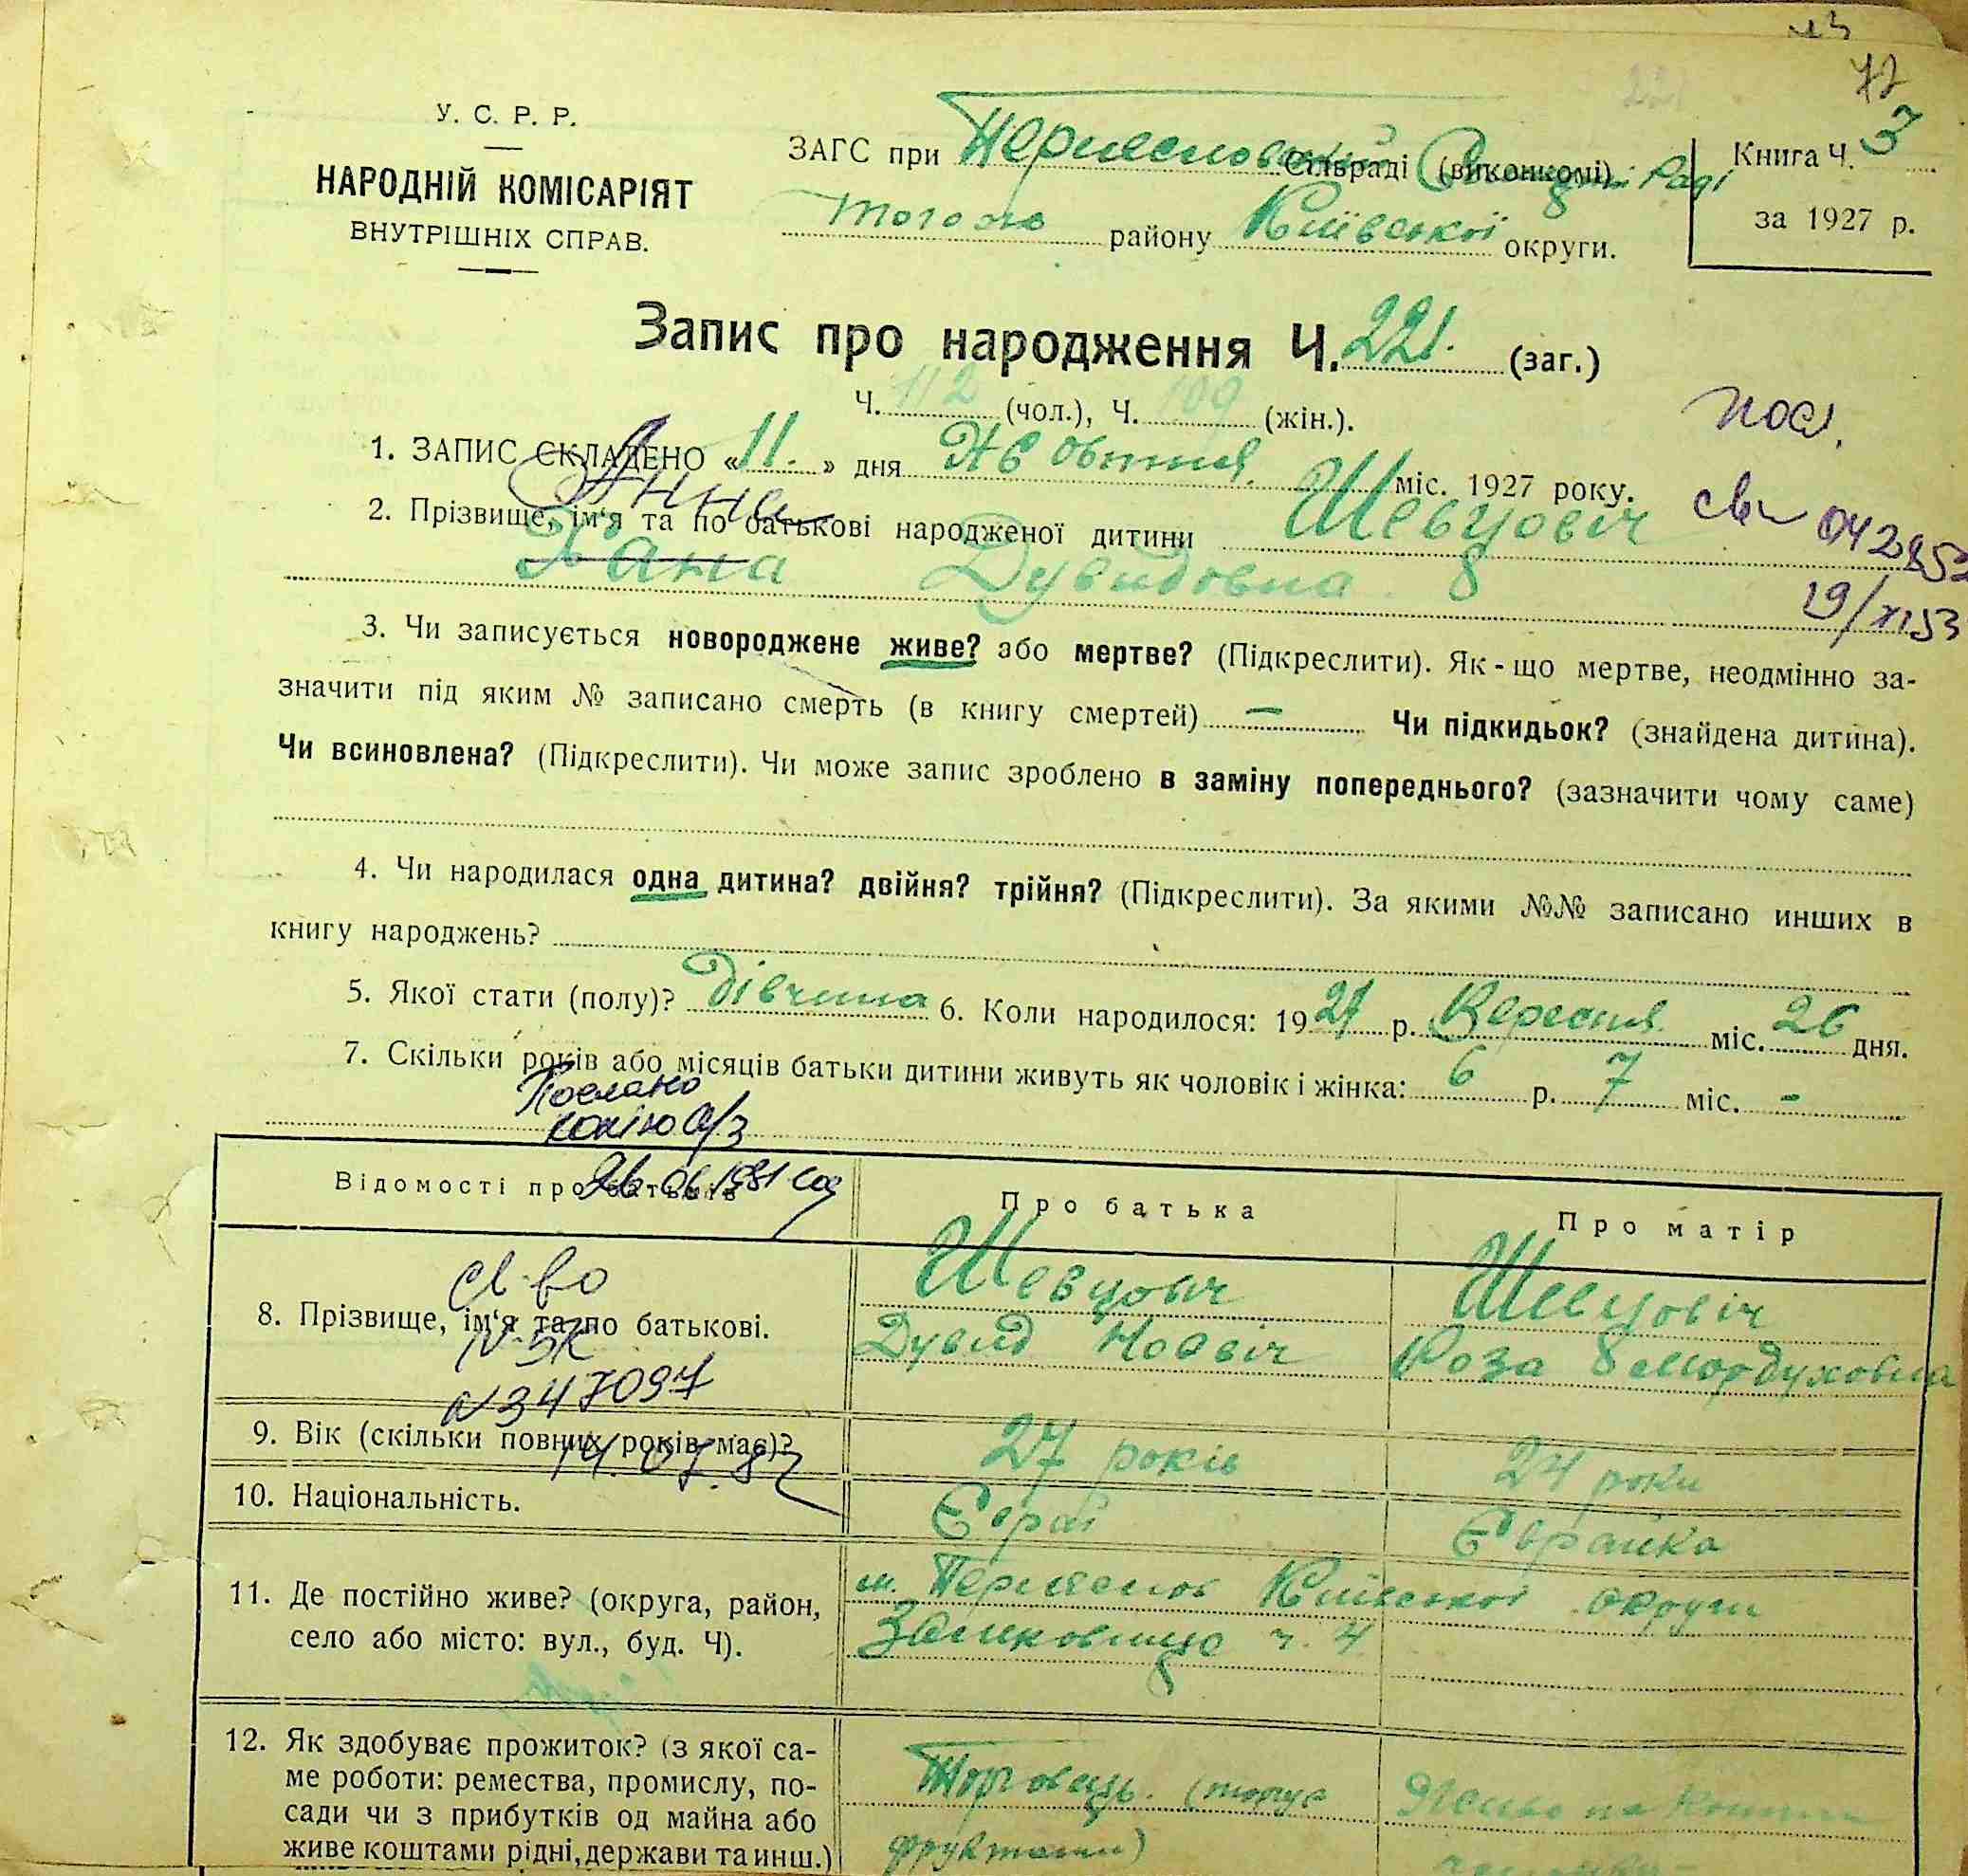 72
У. С. Р. Р.
НАРОДНІЙ КОМІСАРІЯТ
ВНУТРІШНІХ СПРАВ.
ЗАГС при Сільраді (виконкомі) Раді
того ж району Київської округи.
Книга Ч. 3
за 1927 р.
Запис про народження Ч. 221. (заг.)
Ч. 112 (чол.), Ч. 109 (жін.).
1. ЗАПИС СКЛАДЕНО « 11. » дня Жовтня міс. 1927 року.
2. Прізвище, ім'я та по батькові народженої дитини Шевцовіч
Анна
Хана Дувидовна
042852
19/XII 53
3. Чи записується новороджене живе? або мертве? (Підкреслити). Як-що мертве, неодмінно за-
значити під яким № записано смерть (в книгу смертей) — Чи підкидьок? (знайдена дитина).
Чи всиновлена? (Підкреслити). Чи може запис зроблено в заміну попереднього? (зазначити чому саме)
4. Чи народилася одна дитина? двійня? трійня? (Підкреслити). За якими №№ записано инших в
книгу народжень?
5. Якої стати (полу)? Дівчина 6. Коли народилося: 1927 р. Вересня міс. 26 дня.
7. Скільки років або місяців батьки дитини живуть як чоловік і жінка: 6 р. 7 міс. -
Послано
копію а/з
26.06.1981
Відомості про батьків
Про батька
Про матір
св-во
N 347097
14.07.82
8. Прізвище, ім'я та по батькові.
Шевцовіч
Дувид Ноевіч
Шевцовіч
Роза Мордуховна
9. Вік (скільки повних років має)?
27 років
24 роки
10. Національність.
Єврай
Єврайка
11. Де постійно живе? (округа, район,
село або місто: вул., буд. Ч).
Київської округи
ч. 4
12. Як здобуває прожиток? (з якої са-
ме роботи: ремества, промислу, по-
сади чи з прибутків од майна або
живе коштами рідні, держави та инш.)
Торговець. (торгує
фруктами)